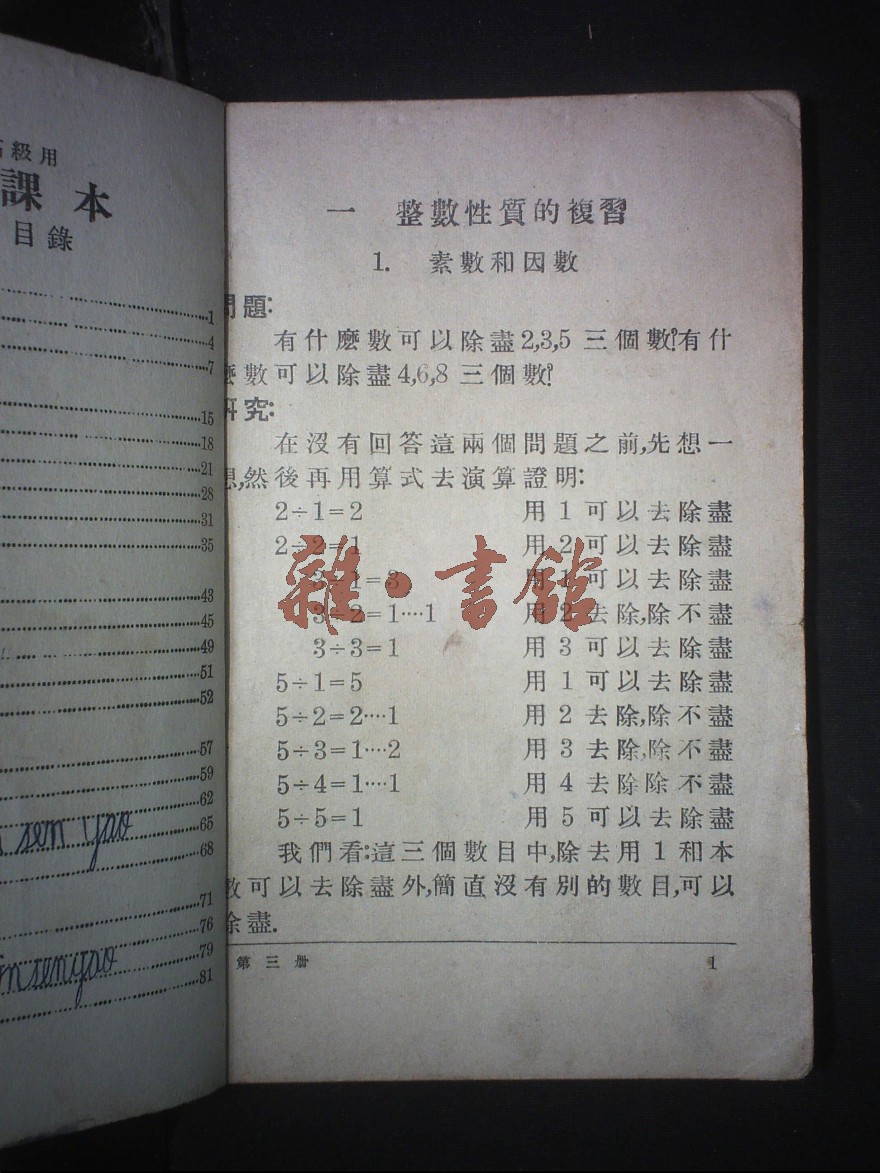 級用
課本
目錄
1
4
7
15
18
21
28
31
35
43
45
49
51
52
57
59
62
65
68
71
76
79
81
sen yao
senyao
一 整數性質的複習
1. 素數和因數
問題:
有什麼數可以除盡2,3,5三個數?有什
麼數可以除盡4,6,8三個數?
研究:
在沒有回答這兩個問題之前,先想一
想,然後再用算式去演算證明:
2÷1=2 用1可以去除盡
2÷2=1 用2可以去除盡
3÷1=3 用1可以去除盡
3÷2=1····1 用2去除,除不盡
3÷3=1 用3可以去除盡
5÷1=5 用1可以去除盡
5÷2=2····1 用2去除,除不盡
5÷3=1····2 用3去除,除不盡
5÷4=1····1 用4去除除不盡
5÷5=1 用5可以去除盡
我們看:這三個數目中,除去用1和本
數可以去除盡外,簡直沒有別的數目,可以
除盡.
第三册 1
雜·書館